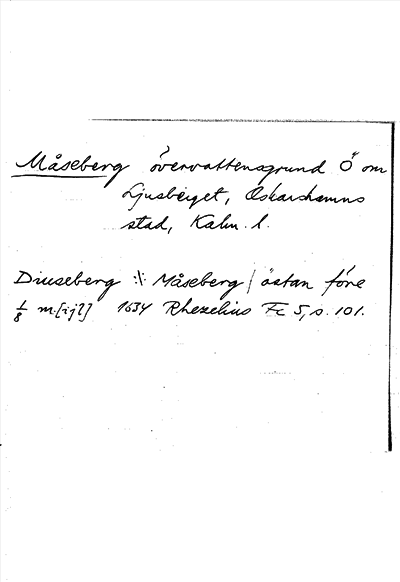 Måseberg övervattensgrund Ö om
Ljusberget, Oskarshamns
stad, Kalm. l.
Diuseberg :/: Måseberg / östan före
1/8 m.[ij?] 1634 Rhezelius Fc 5, s. 101.